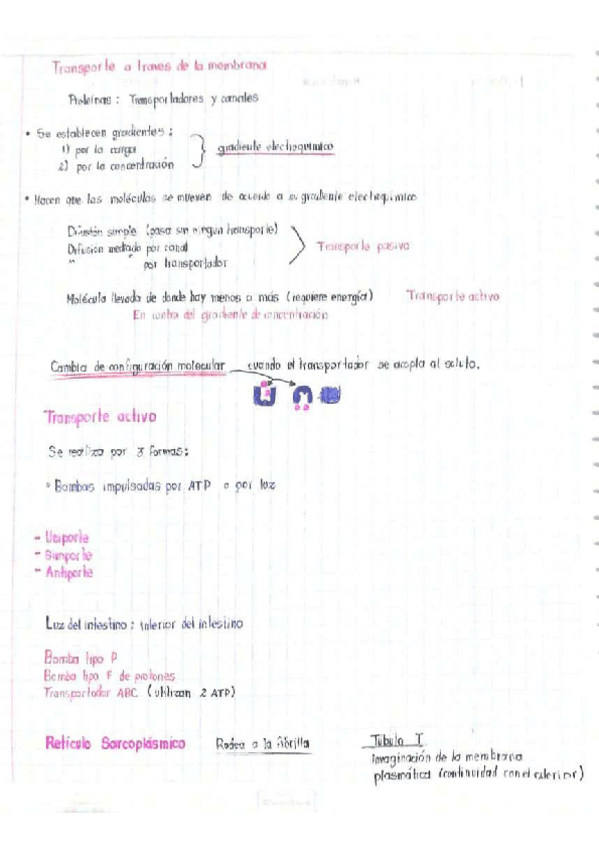 Transporte a traves de la membrana
Proteínas : Transportadores y canales
• Se establecen gradientes :
1) por la carga
2) por la concentración
gradiente electroquímico
• Hacen que las moléculas se mueven de acuerdo a su gradiente electroquímico
Difusión simple (pasa sin ningun transporte)
Difusion mediado por canal
" por transportador
Transporte pasivo
Molécula llevada de donde hay menos a más (requiere energía) Transporte activo
En contra del gradiente de concentración
Cambia de configuración molecular cuando el transportador se acopla al soluto.
Transporte activo
Se realiza por 3 formas:
° Bombas impulsadas por ATP o por luz
- Uniporte
- Simporte
- Antiporte
Luz del intestino : interior del intestino
Bomba tipo P
Bomba tipo F de protones
Transportador ABC (utilizan 2 ATP)
Retículo Sarcoplásmico Rodea a la fibrilla
Túbulo T
Invaginación de la membrana
plasmática (continuidad con el exterior)